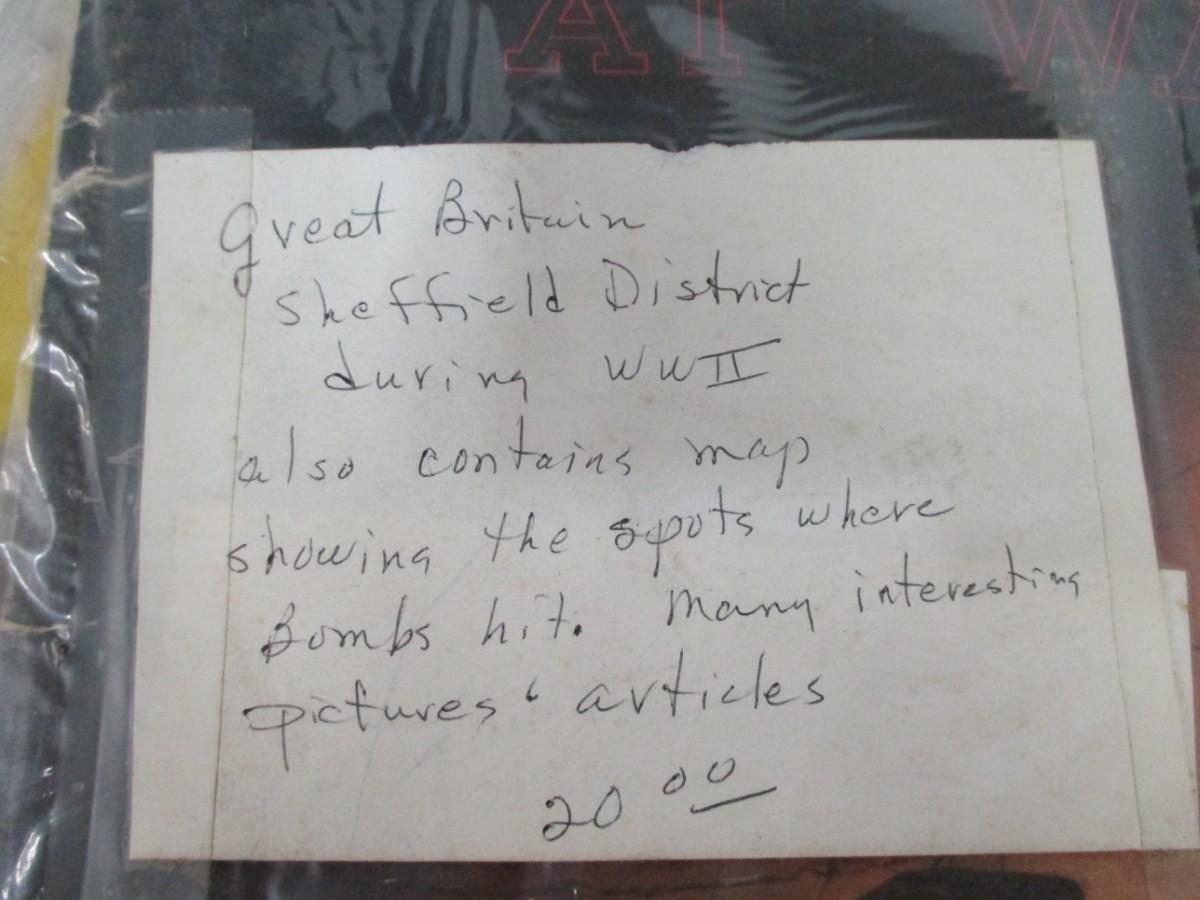 AT WA
Great Britain
Sheffield District
during WWII
also contains map
showing the spots where
Bombs hit. Many interesting
pictures & articles
20 00